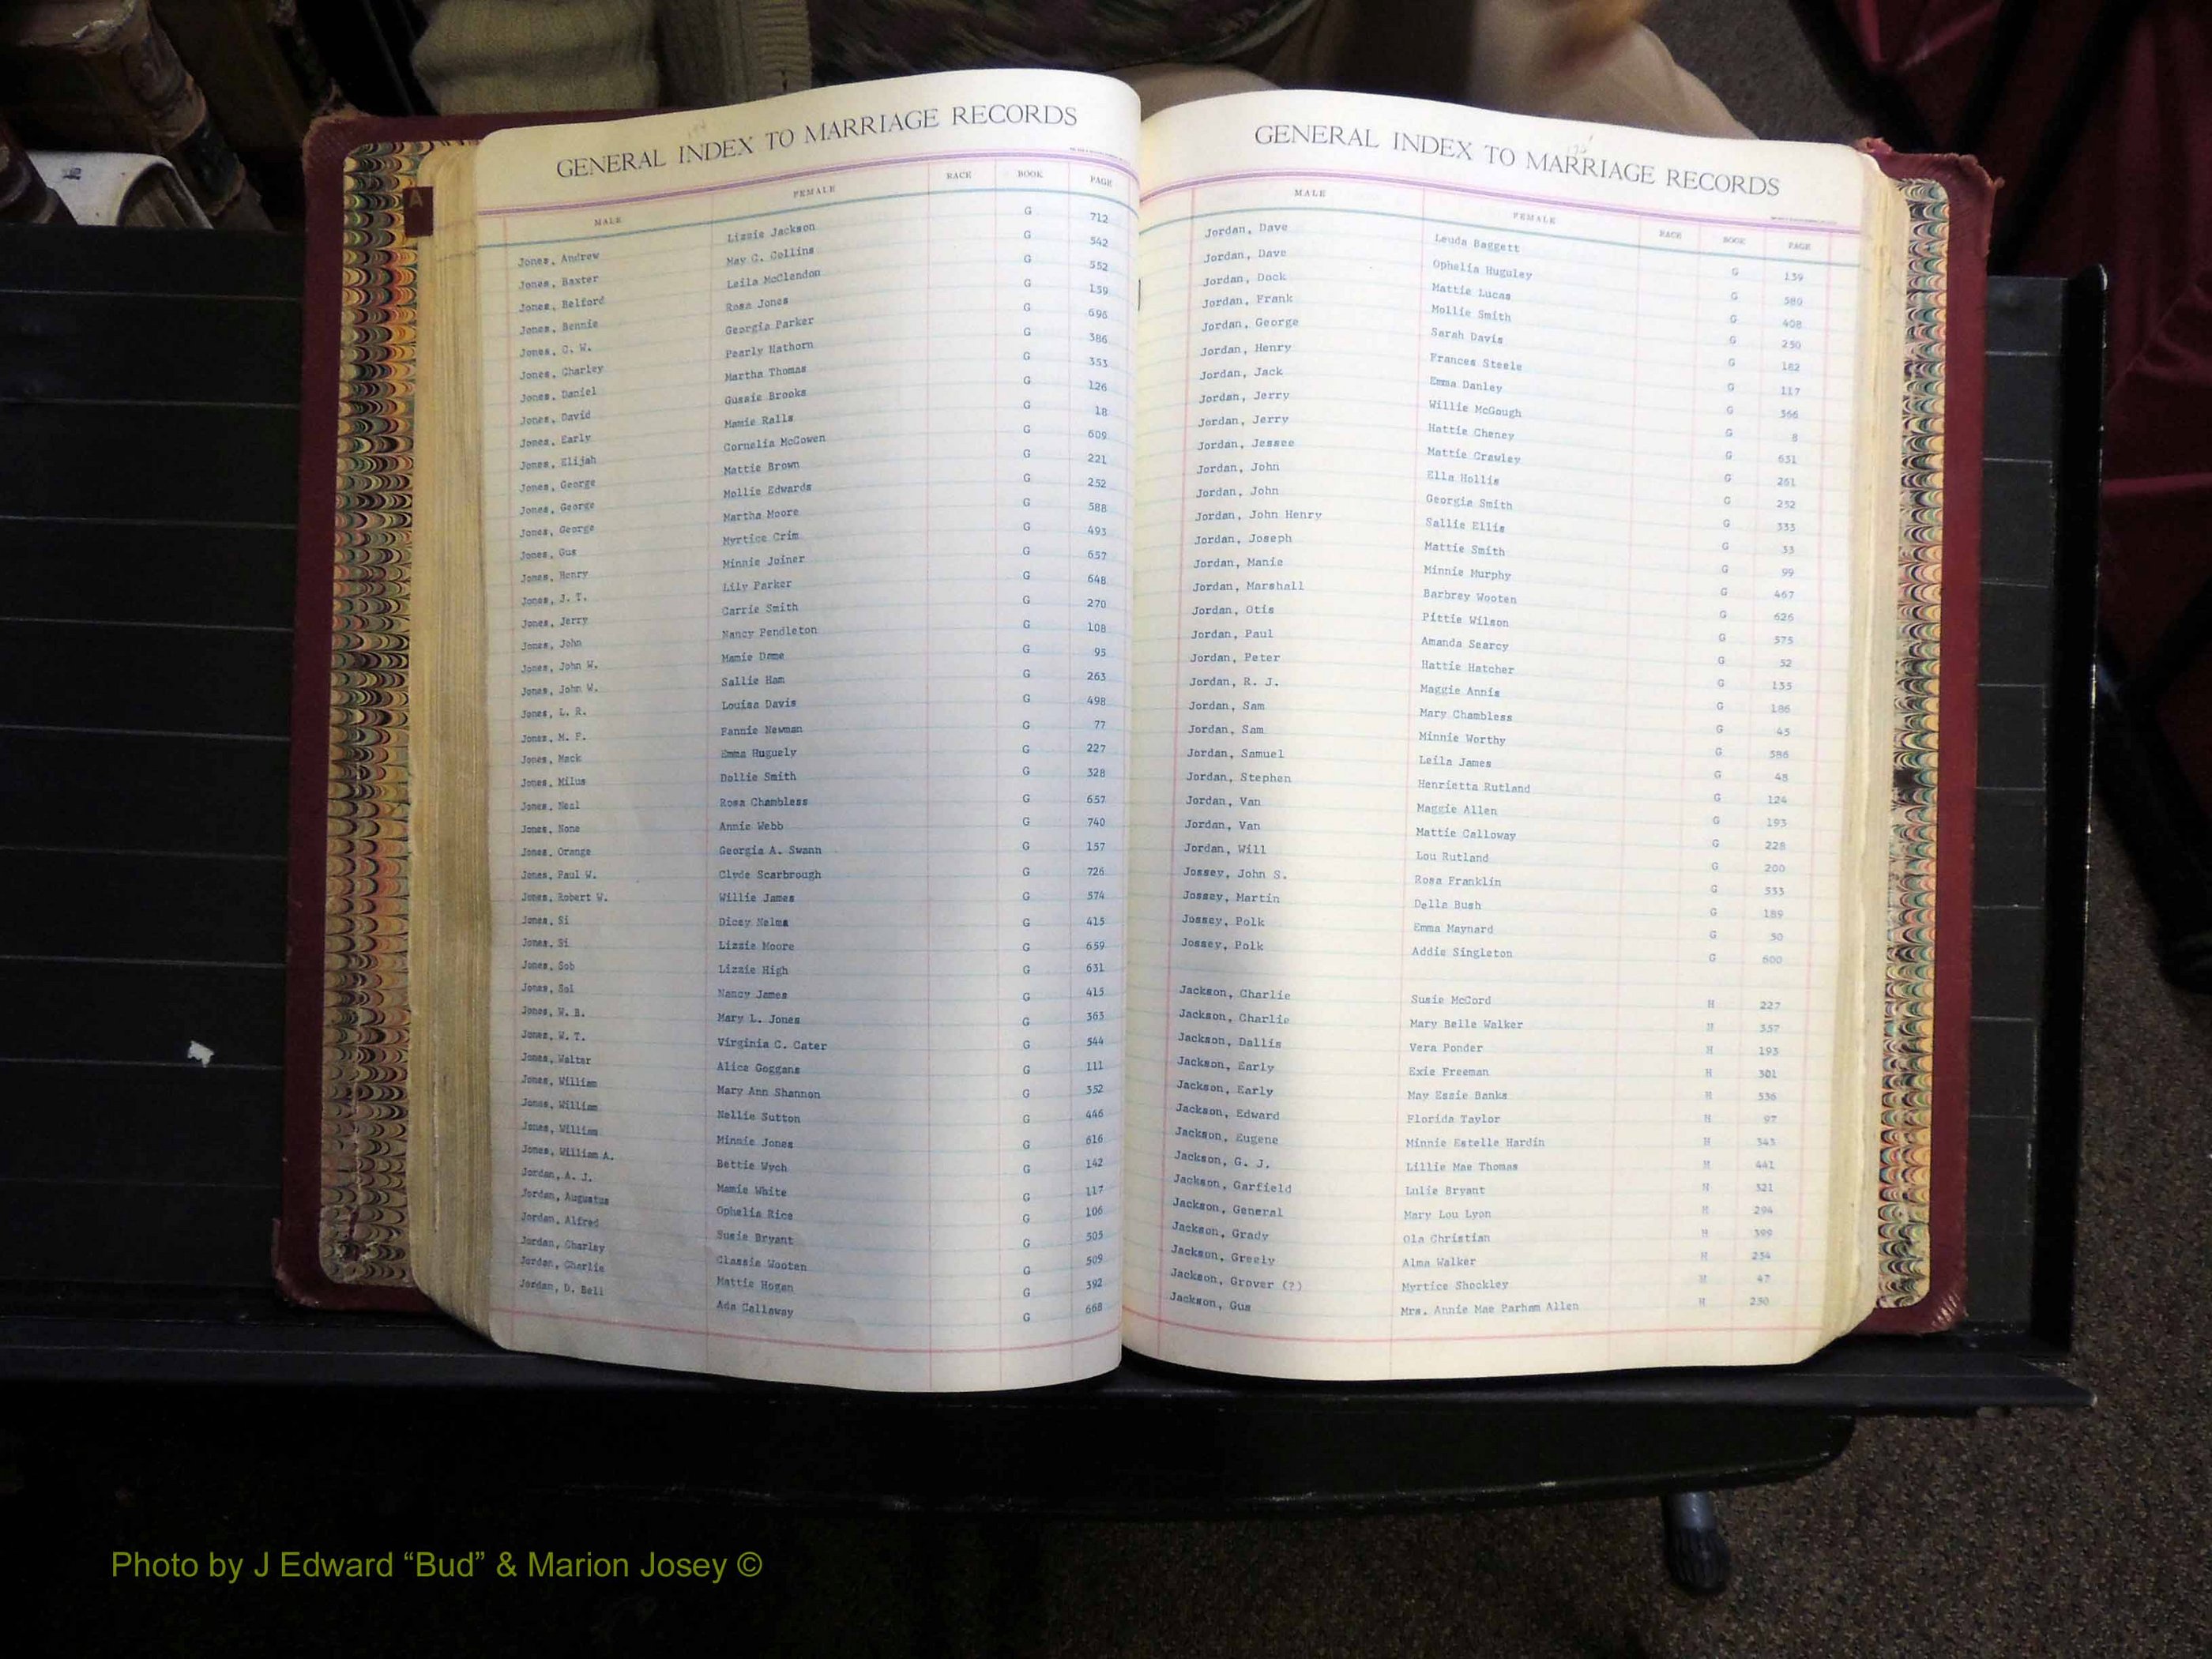 GENERAL INDEX TO MARRIAGE RECORDS
MALE FEMALE RACE BOOK PAGE
Jones, Andrew Lizzie Jackson G 712
Jones, Baxter May C. Collins G 542
Jones, Belford Leila McClendon G 552
Jones, Bennie Rosa Jones G 159
Jones, C. W. Georgia Parker G 696
Jones, Charley Pearly Hathorn G 386
Jones, Daniel Martha Thomas G 353
Jones, David Gussie Brooks G 126
Jones, Early Mamie Ralls G 18
Jones, Elijah Cornelia McCowen G 609
Jones, George Mattie Brown G 221
Jones, George Mollie Edwards G 252
Jones, George Martha Moore G 588
Jones, Gus Myrtice Crim G 493
Jones, Henry Minnie Joiner G 657
Jones, J. T. Lily Parker G 648
Jones, Jerry Carrie Smith G 270
Jones, John Nancy Pendleton G 108
Jones, John W. Mamie Dame G 95
Jones, John W. Sallie Ham G 263
Jones, L. R. Louisa Davis G 498
Jones, M. F. Fannie Newman G 77
Jones, Mack Emma Huguely G 227
Jones, Milus Dollie Smith G 328
Jones, Neal Rosa Chambless G 657
Jones, None Annie Webb G 740
Jones, Orange Georgia A. Swann G 157
Jones, Paul W. Clyde Scarbrough G 726
Jones, Robert W. Willie James G 574
Jones, Si Dicey Nelms G 415
Jones, Si Lizzie Moore G 659
Jones, Sob Lizzie High G 631
Jones, Sol Nancy James G 415
Jones, W. B. Mary L. Jones G 363
Jones, W. T. Virginia C. Cater G 544
Jones, Walter Alice Goggans G 111
Jones, William Mary Ann Shannon G 352
Jones, William Nellie Sutton G 446
Jones, William Minnie Jones G 616
Jones, William A. Bettie Wych G 142
Jordan, A. J. Mamie White G 117
Jordan, Augustus Ophelia Rice G 106
Jordan, Alfred Susie Bryant G 505
Jordan, Charley Classie Wooten G 509
Jordan, Charlie Mattie Hogan G 392
Jordan, D. Bell Ada Callaway G 668
GENERAL INDEX TO MARRIAGE RECORDS
MALE FEMALE RACE BOOK PAGE
Jordan, Dave Leuda Baggett G 139
Jordan, Dave Ophelia Huguley G 580
Jordan, Dock Mattie Lucas G 408
Jordan, Frank Mollie Smith G 250
Jordan, George Sarah Davis G 182
Jordan, Henry Frances Steele G 117
Jordan, Jack Emma Danley G 366
Jordan, Jerry Willie McGough G 8
Jordan, Jerry Hattie Cheney G 631
Jordan, Jessee Mattie Crawley G 261
Jordan, John Ella Hollis G 252
Jordan, John Georgia Smith G 333
Jordan, John Henry Sallie Ellis G 33
Jordan, Joseph Mattie Smith G 99
Jordan, Manie Minnie Murphy G 467
Jordan, Marshall Barbrey Wooten G 626
Jordan, Otis Pittie Wilson G 575
Jordan, Paul Amanda Searcy G 52
Jordan, Peter Hattie Hatcher G 135
Jordan, R. J. Maggie Annis G 186
Jordan, Sam Mary Chambless G 45
Jordan, Sam Minnie Worthy G 586
Jordan, Samuel Leila James G 48
Jordan, Stephen Henrietta Rutland G 124
Jordan, Van Maggie Allen G 193
Jordan, Van Mattie Calloway G 228
Jordan, Will Lou Rutland G 200
Jossey, John S. Rosa Franklin G 533
Jossey, Martin Della Bush G 189
Jossey, Polk Emma Maynard G 50
Jossey, Polk Addie Singleton G 600
Jackson, Charlie Susie McCord H 227
Jackson, Charlie Mary Belle Walker H 337
Jackson, Dallis Vera Ponder H 193
Jackson, Early Exie Freeman H 301
Jackson, Early May Essie Banks H 536
Jackson, Edward Florida Taylor H 97
Jackson, Eugene Minnie Estelle Hardin H 343
Jackson, G. J. Lillie Mae Thomas H 441
Jackson, Garfield Lulie Bryant H 321
Jackson, General Mary Lou Lyon H 294
Jackson, Grady Ola Christian H 399
Jackson, Greely Alma Walker H 234
Jackson, Grover (?) Myrtice Shockley H 47
Jackson, Gus Mrs. Annie Mae Parham Allen H 230
Photo by J Edward “Bud” & Marion Josey ©